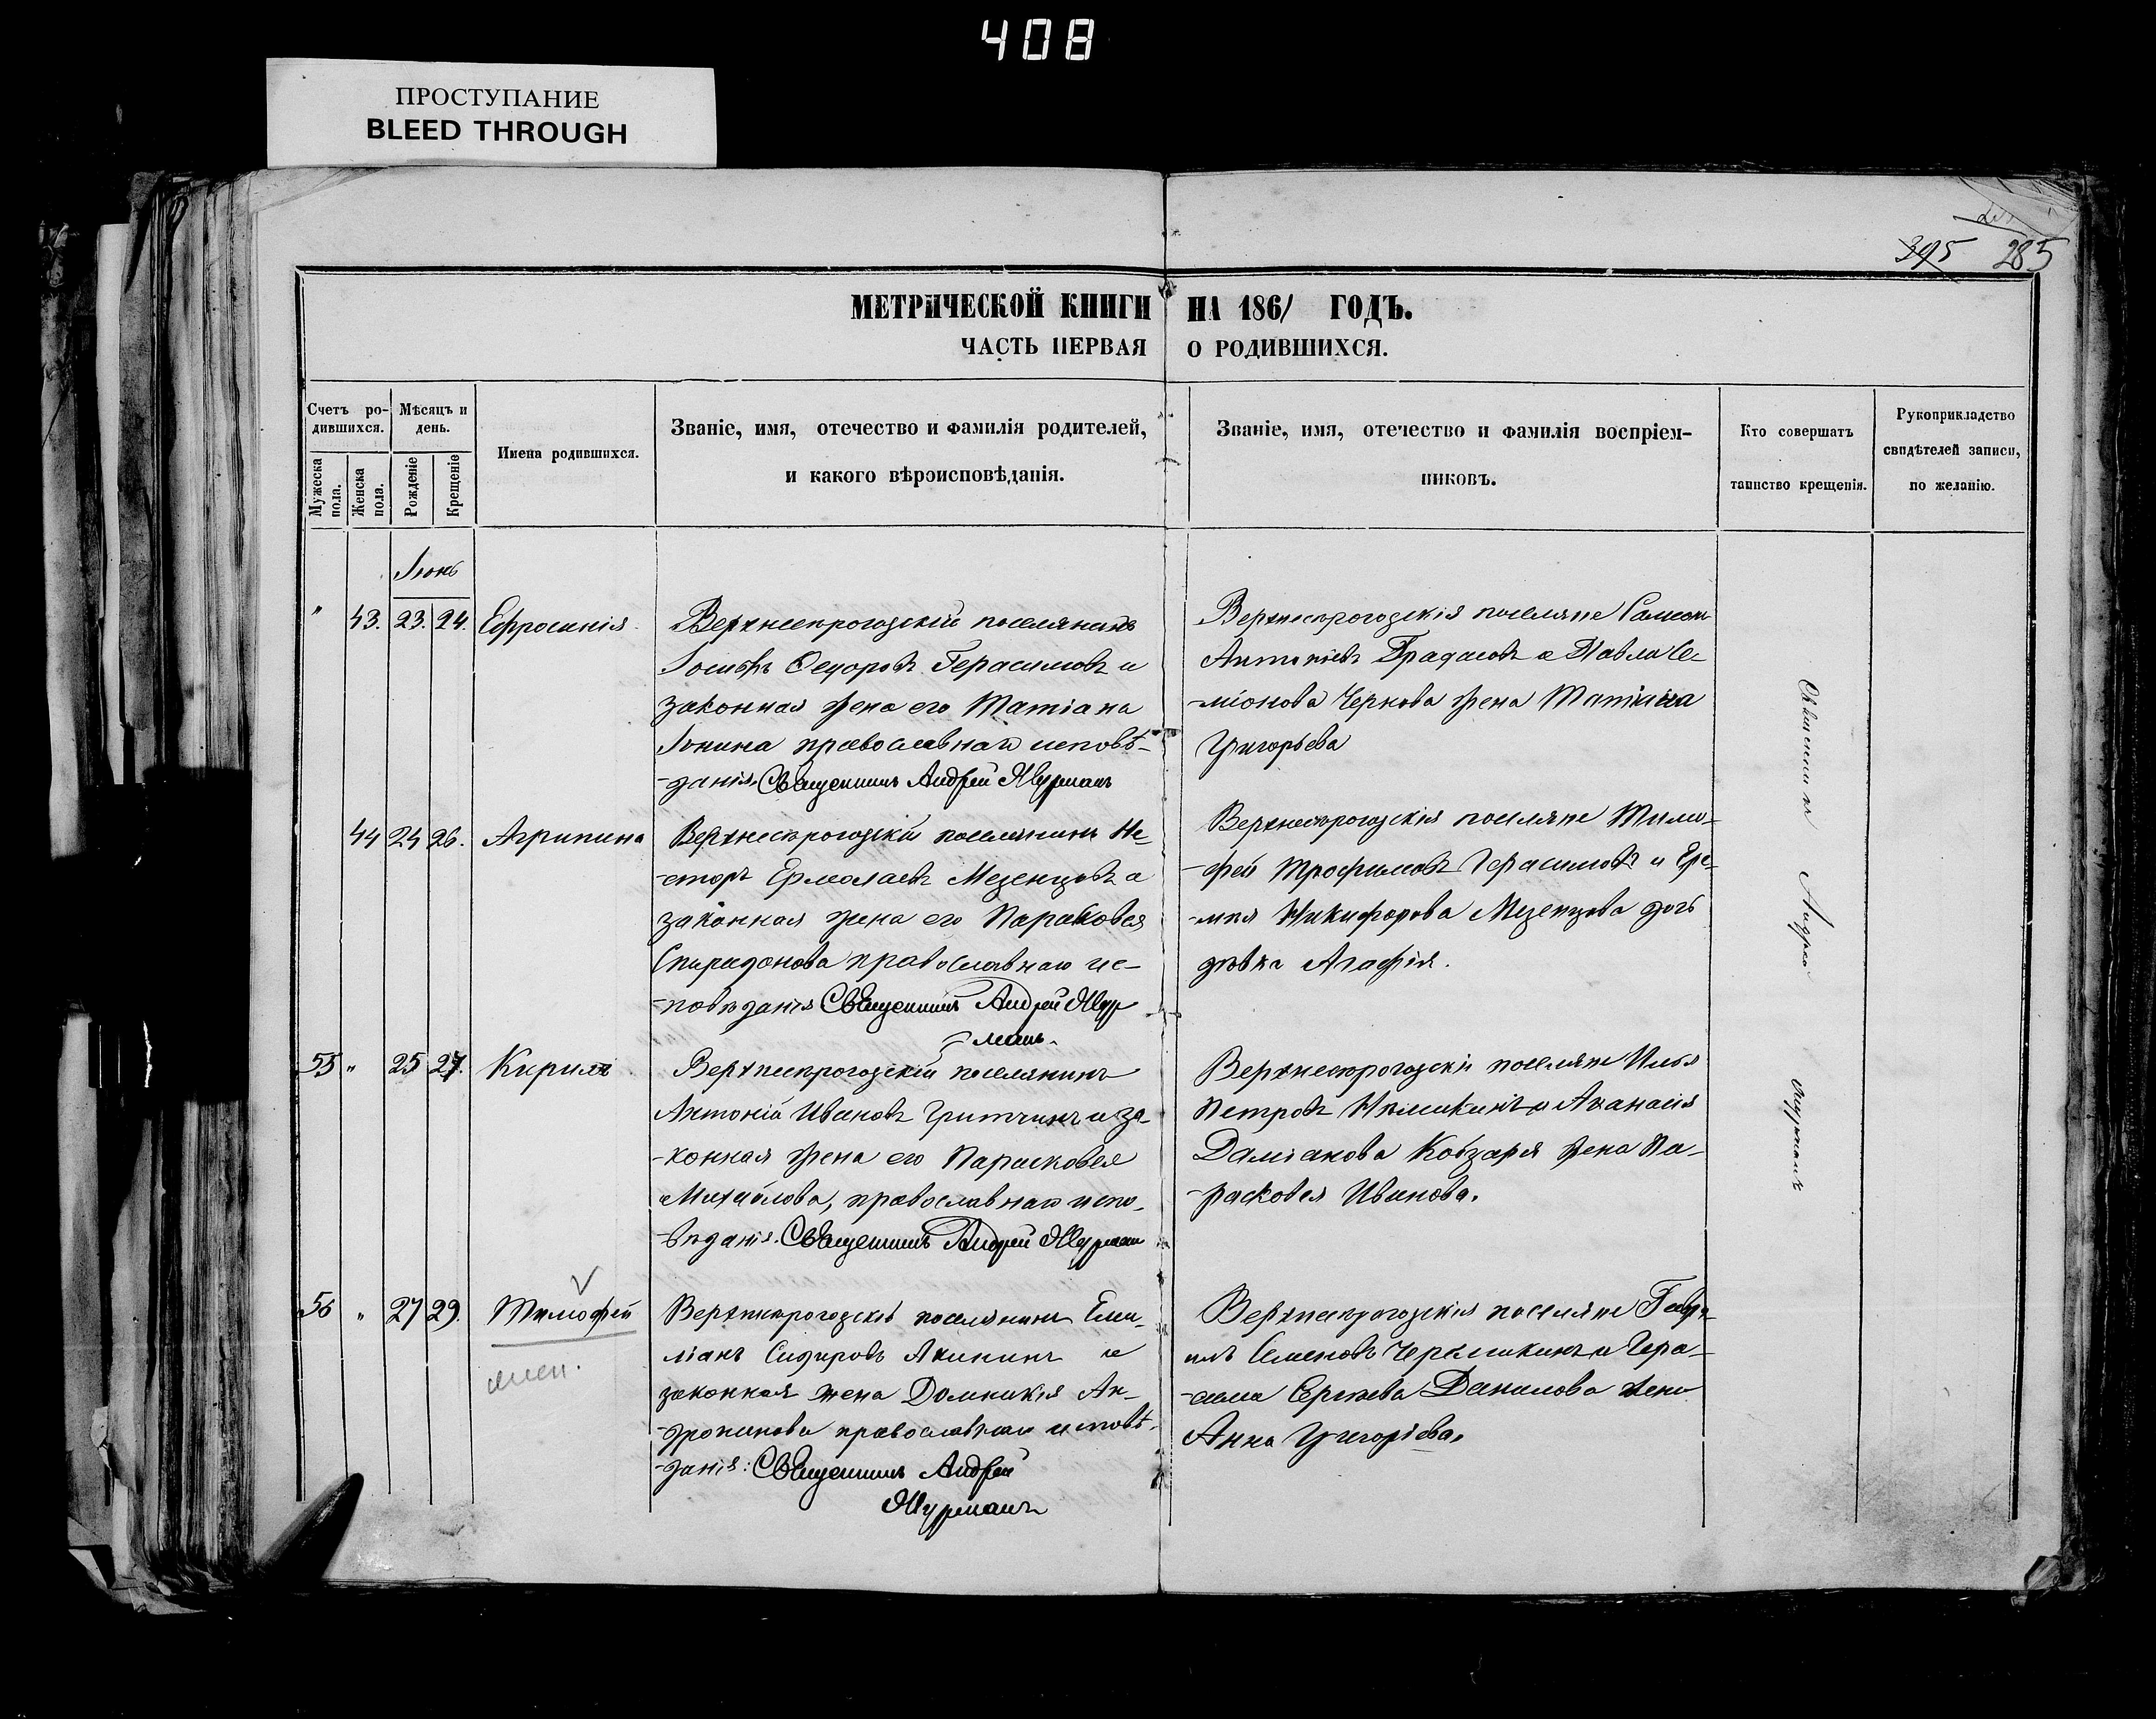 408
ПРОСТУПАНИЕ
BLEED THROUGH
395 285
МЕТРИЧЕСКОЙ КНИГИ НА 1861 ГОДЪ.
ЧАСТЬ ПЕРВАЯ О РОДИВШИХСЯ.
Счетъ ро-
дившихся.
Мужеска пола.
Женска пола.
Мѣсяцъ и
день.
Рожденіе
Крещеніе
Имена родившихся.
Званіе, имя, отечество и фамилія родителей,
и какого вѣроисповѣданія.
Званіе, имя, отечество и фамилія воспріем-
никовъ.
Кто совершатъ
таинство крещенія.
Рукоприкладство
свидѣтелей записи,
по желанію.
Іюнь
" 43. 23. 24. Ефросинія
Верхнерогозскій поселянинъ
Іосифъ Ѳедоровъ Герасимовъ и
законная жена его Татіана
православнаго исповѣ-
-данія. Священникъ Андрей Мурманъ
Верхнерогозскія поселяне
Павла Се-
-міонова Чернова жена
Григорьева
44 24 26. Агрипина
Верхнерогозскій поселянинъ Не-
-сторъ Ермолаевъ Мезенцовъ и
законная жена его Парасковея
Спиридонова православнаго ис-
-повѣданія Священникъ Андрей Мур
-манъ.
Верхнерогозскія поселяне Тимо-
-фей Трофимовъ Герасимовъ и Ере-
-мія Никифорова Мезенцова дочь
дѣвка Агафія.
55 " 25 27. Кирилъ
Верхнерогозскій поселянинъ
Антоній Ивановъ и за-
-конная жена его Парасковея
Михайлова, православнаго испо-
-вѣданія. Священникъ Андрей Мурман
Верхнерогозскія поселяне Илья
Петровъ и Аѳанасія
Даміанова Кобзаря жена Па-
-расковея Иванова.
56 " 27 29. Тимофей
Верхнерогозскій поселянинъ Еми-
-ліанъ Сидоровъ Акининъ и
законная жена Домникія Ан-
-дроникова православнаго исповѣ-
-данія: Священникъ Андрей
Мурманъ
Верхнерогозскія поселяне Гаврі-
илъ Семеновъ и Гера-
-сима Данилова жена
Анна Григоріева.
Священникъ Андрей Мурманъ